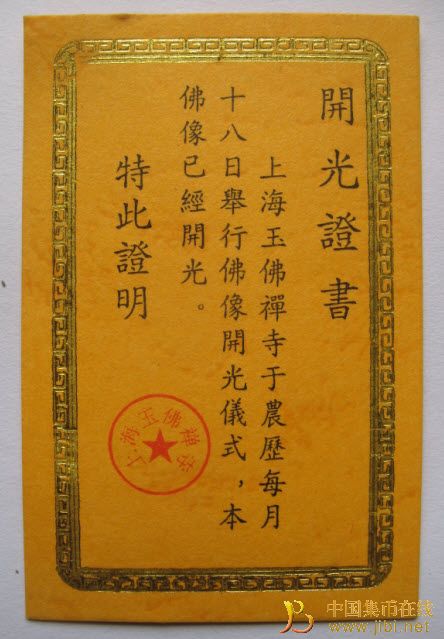 開光證書
上海玉佛禪寺于農歷每月
十八日舉行佛像開光儀式，本
佛像已經開光。
特此證明
上海玉佛禅寺
中国集币在线
www.jibi.net